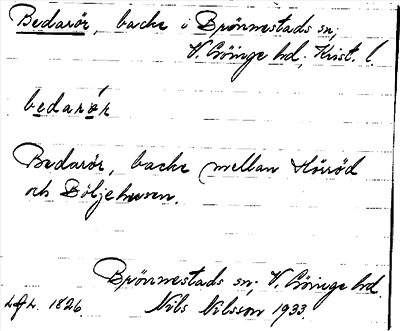 Bedarör, backe i Brönnestads sn;
V. Göinge hd; Krist. l.
bedarór
Bedarör, backe mellan Hörröd
och Böljehusen.
Brönnestads sn; V. Göinge hd.
1826. Nils Nilsson 1933.